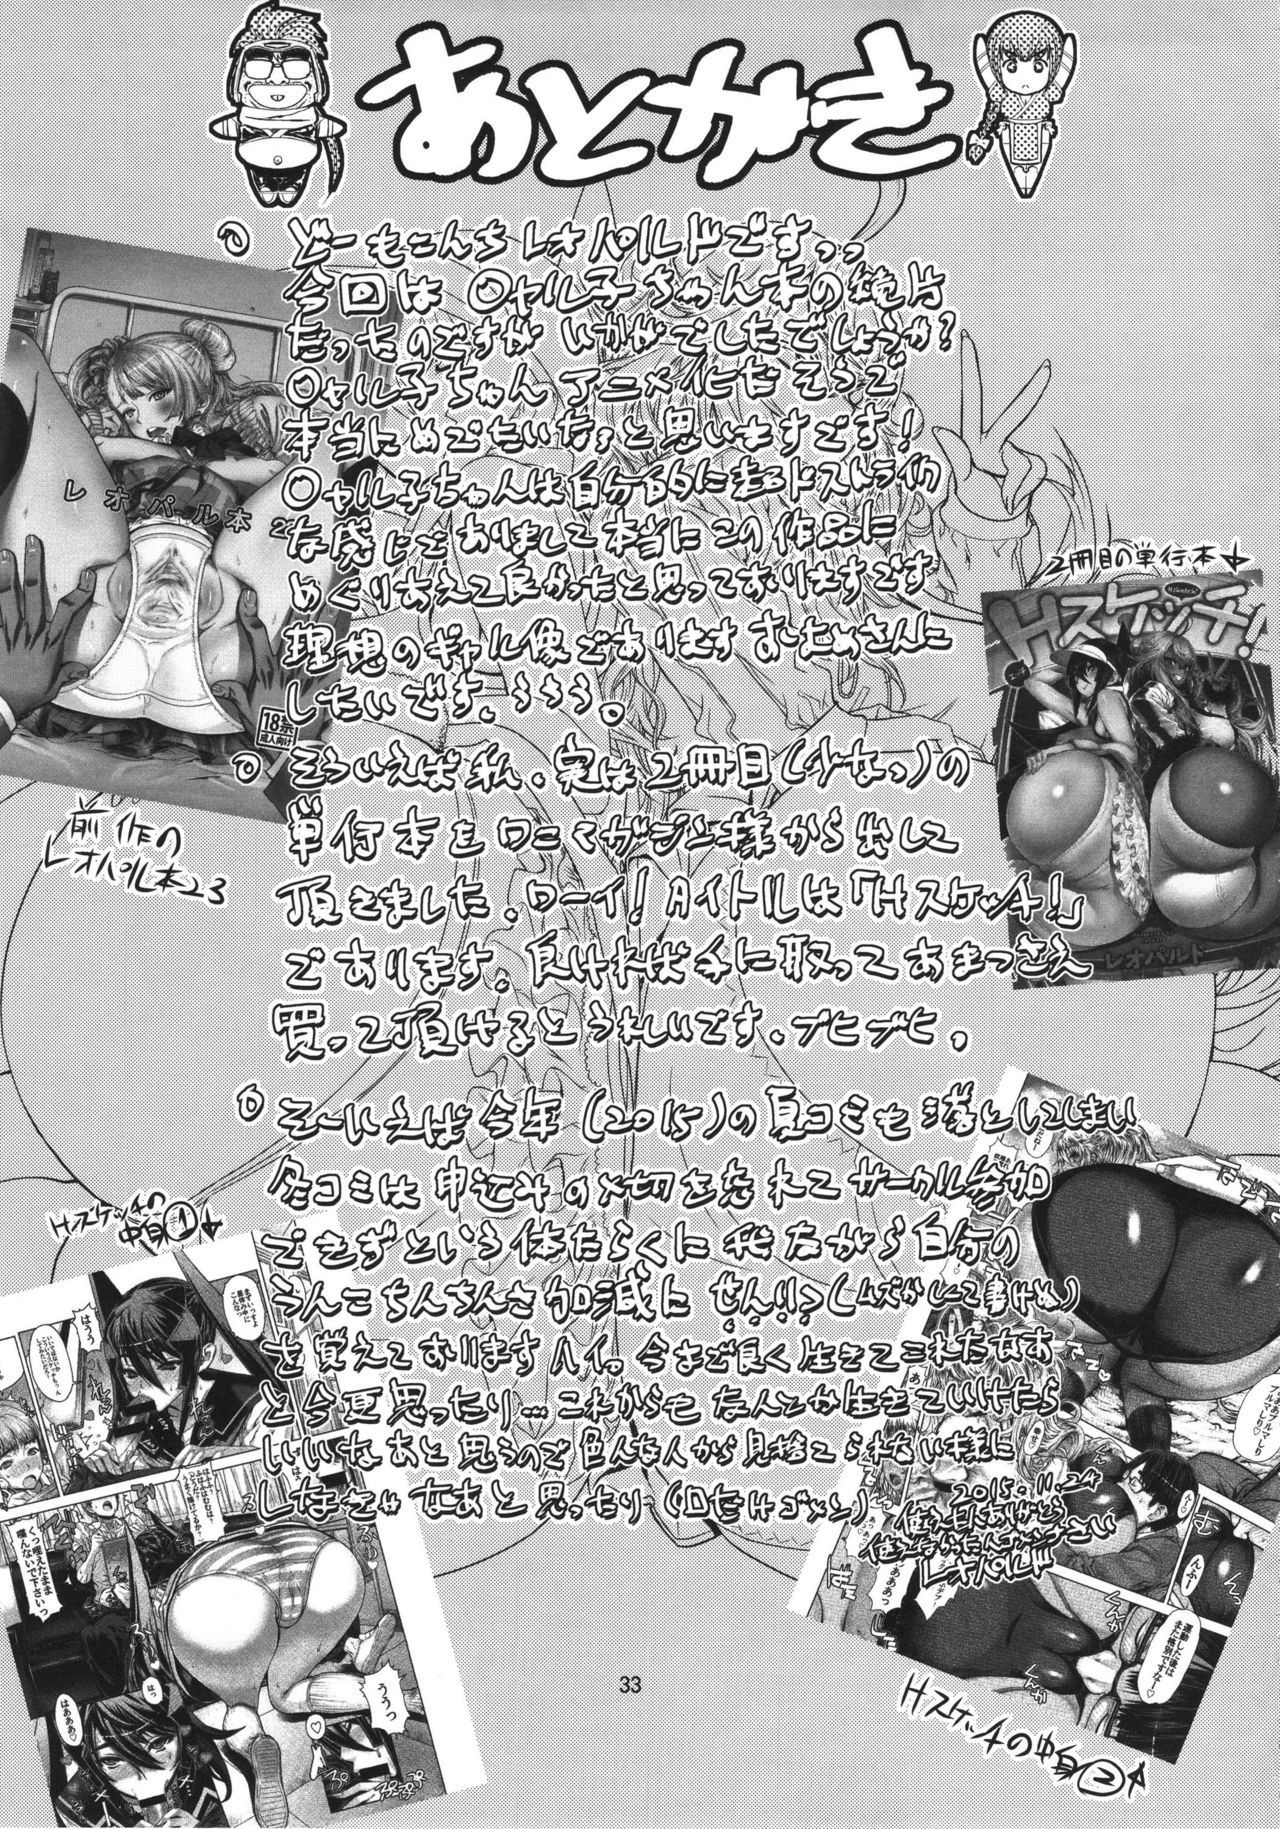 あとがき
どーもこんちレオパルドですっ。
今回は〇ャル子ちゃん本の続片
だったのですがいかがでしたでしょうか?
〇ャル子ちゃんアニメ化だそうで
本当にめでたいなぁと思いますです!
〇ャル子ちゃんは自分的に超ドストライク
な感じでありまして本当にこの作品に
めぐりあえて良かったと思っておりますです
理想のギャル像であります
したいです。
そういえば私、実は2冊目(少なっ)の
単行本をワニマガジン様から出して
頂きました。ワーイ!タイトルは「Hスケッチ!」
であります。良ければ手に取ってあまつさえ
買って頂けるとうれしいです。ブヒブヒ。
そーいえば今年(2015)の夏コミも落としてしまい
冬コミは申込みの〆切を忘れてサークル参加
できずという体たらくに我ながら自分の
うんこちんちんさ加減にせんりつ(ムズかしくて書けぬ)
を覚えておりますハイ。今まで良く生きてこれたなあ
と今更思ったり…これからもなんとか生きていけたら
いいなあと思うので色んな人から見捨てられない様に
しなきゃなあと思ったり(口だけゴメン)
2015.11.24
レオパルド
レオパル本2
18禁
成人向け
前作の
レオパル本23
2冊目の単行本
Hスケッチ!
レオパルド
Hスケッチの
中身①
はうう
くっ咥えたまま
喋んないで下さいっ
ううっ
はっ
はあああ♡
ぷ
ぷぷぷ
んふー
運動した後は
また格別ですなー♡
Hスケッチの中身②
33